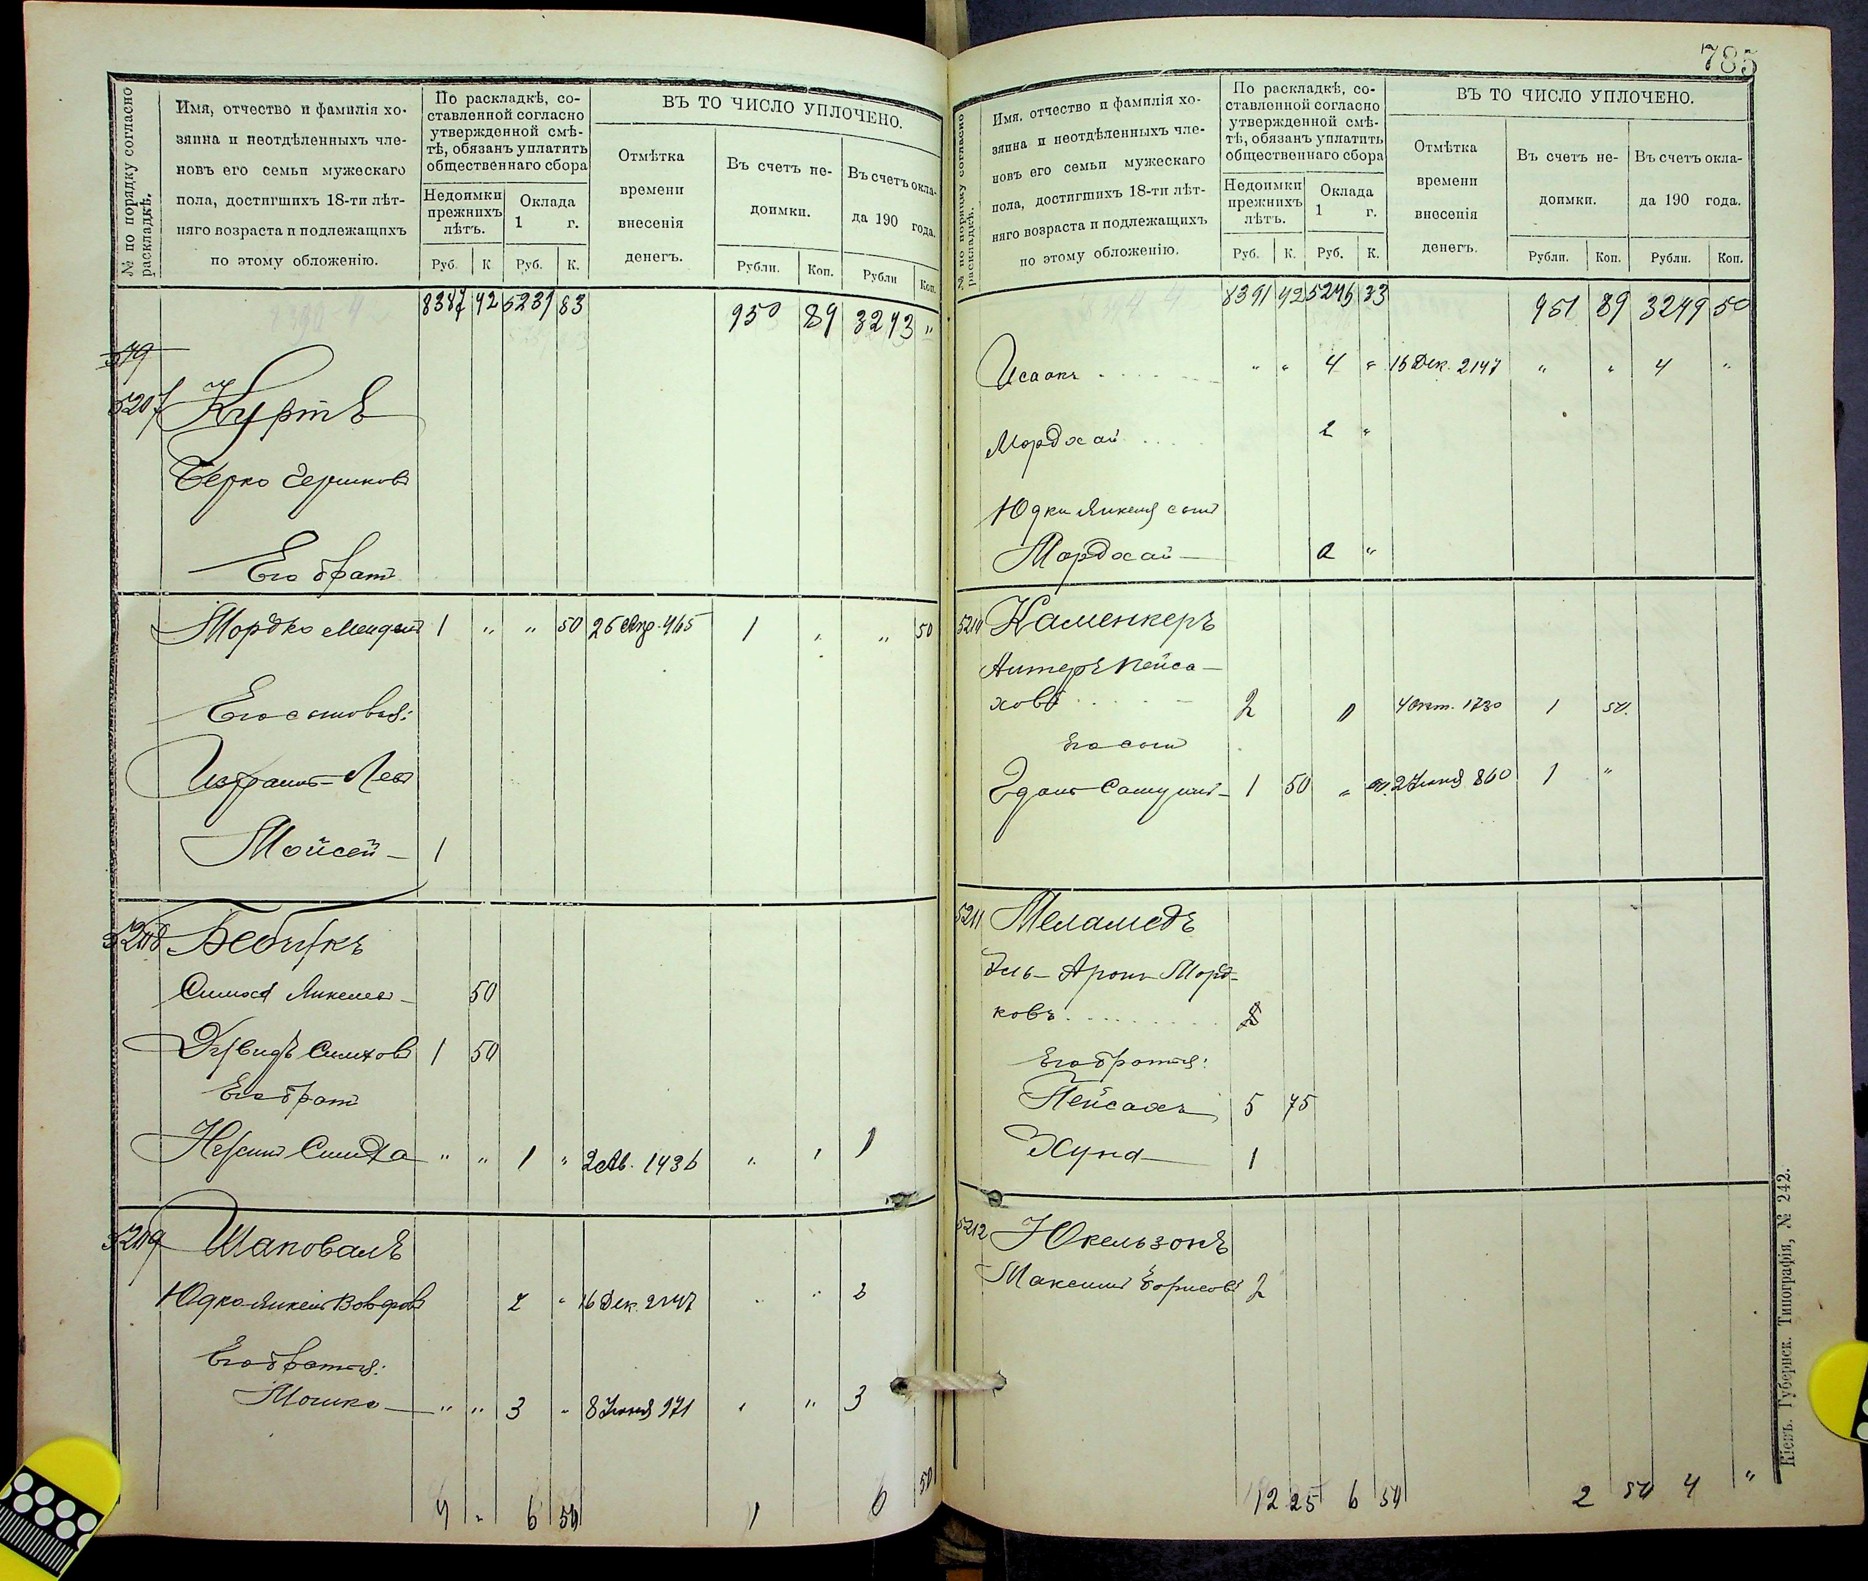 № по порядку согласно раскладкѣ.
Имя, отчество и фамилія хо-
зяина и неотдѣленныхъ чле-
новъ его семьи мужескаго
пола, достигшихъ 18-ти лѣт-
няго возраста и подлежащихъ
по этому обложенію.
По раскладкѣ, со-
ставленной согласно
утвержденной смѣ-
тѣ, обязанъ уплатить
общественнаго сбора
Недоимки
прежнихъ
лѣтъ.
Оклада
1 г.
Руб. К Руб. К.
ВЪ ТО ЧИСЛО УПЛОЧЕНО.
Отмѣтка
времени
внесенія
денегъ.
Въ счетъ не-
доимки.
Рубли. Коп.
Въ счетъ окла-
да 190 года.
Рубли Коп.
8387 42 5239 83 950 89 3243 "
5207 Куртъ
Берко Гершковъ
Его братъ
Мордко Мендель 1 " " 50 26 Апр. 465 1 " " 50
Его сыновья:
Израиль-Лейб
Мойсей 1
5208 Бебчукъ
Симха Янкелев 50
Давидъ Симховъ 1 50
Его братъ
Нусинъ Симха " " 1 " 2 Ав. 1436 " " 1
5209 Шаповалъ
Юдко Янкель Вовфовъ 2 " 16 Дек. 2147 " " 2
Его братья:
Мошко " " 3 " 8 Іюня 971 " " 3
4 " 6 50 1 6 50
785
№ по порядку согласно раскладкѣ.
Имя, отчество и фамилія хо-
зяина и неотдѣленныхъ чле-
новъ его семьи мужескаго
пола, достигшихъ 18-ти лѣт-
няго возраста и подлежащихъ
по этому обложенію.
По раскладкѣ, со-
ставленной согласно
утвержденной смѣ-
тѣ, обязанъ уплатить
общественнаго сбора
Недоимки
прежнихъ
лѣтъ.
Оклада
1 г.
Руб. К. Руб. К.
ВЪ ТО ЧИСЛО УПЛОЧЕНО.
Отмѣтка
времени
внесенія
денегъ.
Въ счетъ не-
доимки.
Рубли. Коп.
Въ счетъ окла-
да 190 года.
Рубли. Коп.
8391 42 5246 33 951 89 3249 50
Исаакъ " " 4 " 16 Дек. 2147 " " 4 "
Мордхай 2 "
Юдки Янкеля сынъ
Мордхай "
5210 Каменкеръ
Алтеръ Пейса-
ховъ 2 4 Окт. 1730 1 50
Его сынъ
Эданъ Самуилъ 1 50 " 50 2 Іюня 860 1 "
5211 Меламедъ
Эль-Аронъ Морд-
ковъ
Его братья:
Пейсахъ 5 75
Хуна 1
5212 Юкельзонъ
Максимъ Борисовъ 2
12 25 6 50 2 50 4 "
Кіевъ. Губернск. Типографія, № 242.